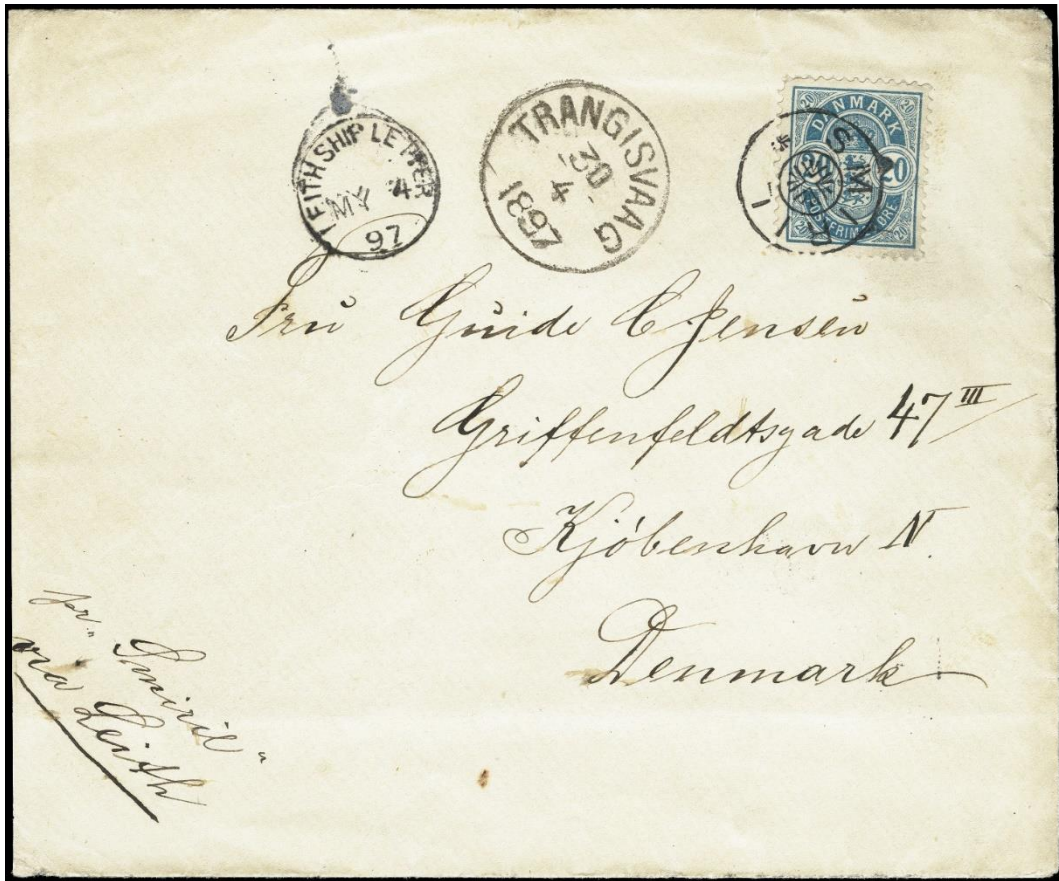 LEITH SHIP LETTER
MY 4
97
TRANGISVAAG
30
4
1897
DANMARK
20 20
20 20
POSTFRIM. ØRE
20 20
SMIRIL
Fru Guide C Jensen
Griffenfeldtsgade 47 III
Kjöbenhavn N.
Denmark
pr. "Smiril"
via Leith